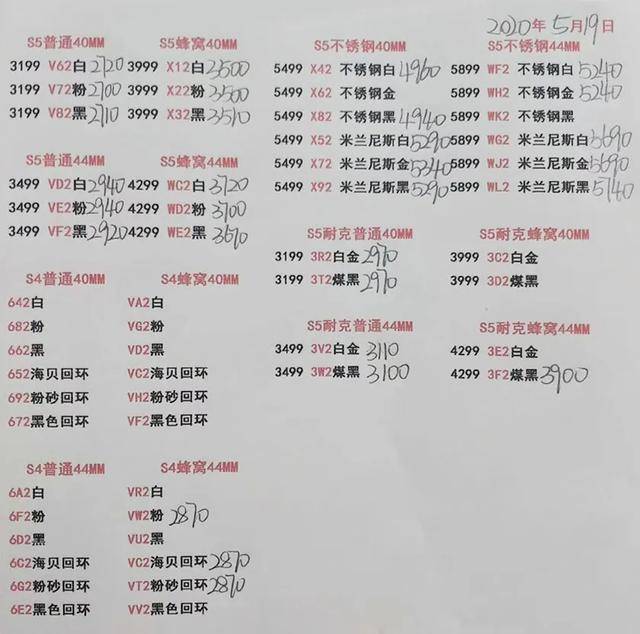 2020年5月19日
S5普通40MM
3199 V62白2720
3199 V72粉2700
3199 V82黑2710
S5蜂窝40MM
3999 X12白3500
3999 X22粉3500
3999 X32黑3510
S5不锈钢40MM
5499 X42 不锈钢白4960
5499 X62 不锈钢金
5499 X82 不锈钢黑4940
5499 X52 米兰尼斯白5290
5499 X72 米兰尼斯金5240
5499 X92 米兰尼斯黑5290
S5不锈钢44MM
5899 WF2 不锈钢白5240
5899 WH2 不锈钢金5240
5899 WK2 不锈钢黑
5899 WG2 米兰尼斯白5690
5899 WJ2 米兰尼斯金5690
5899 WL2 米兰尼斯黑5740
S5普通44MM
3499 VD2白2940
3499 VE2粉2940
3499 VF2黑2920
S5蜂窝44MM
4299 WC2白3720
4299 WD2粉3700
4299 WE2黑3670
S5耐克普通40MM
3199 3R2白金2970
3199 3T2煤黑2970
S5耐克蜂窝40MM
3999 3C2白金
3999 3D2煤黑
S5耐克普通44MM
3499 3V2白金3110
3499 3W2煤黑3100
S5耐克蜂窝44MM
4299 3E2白金
4299 3F2煤黑3900
S4普通40MM
642白
682粉
662黑
652海贝回环
692粉砂回环
672黑色回环
S4蜂窝40MM
VA2白
VG2粉
VD2黑
VC2海贝回环
VH2粉砂回环
VF2黑色回环
S4普通44MM
6A2白
6F2粉
6D2黑
6C2海贝回环
6G2粉砂回环
6E2黑色回环
S4蜂窝44MM
VR2白
VW2粉2870
VU2黑
VC2海贝回环2870
VT2粉砂回环2870
VV2黑色回环